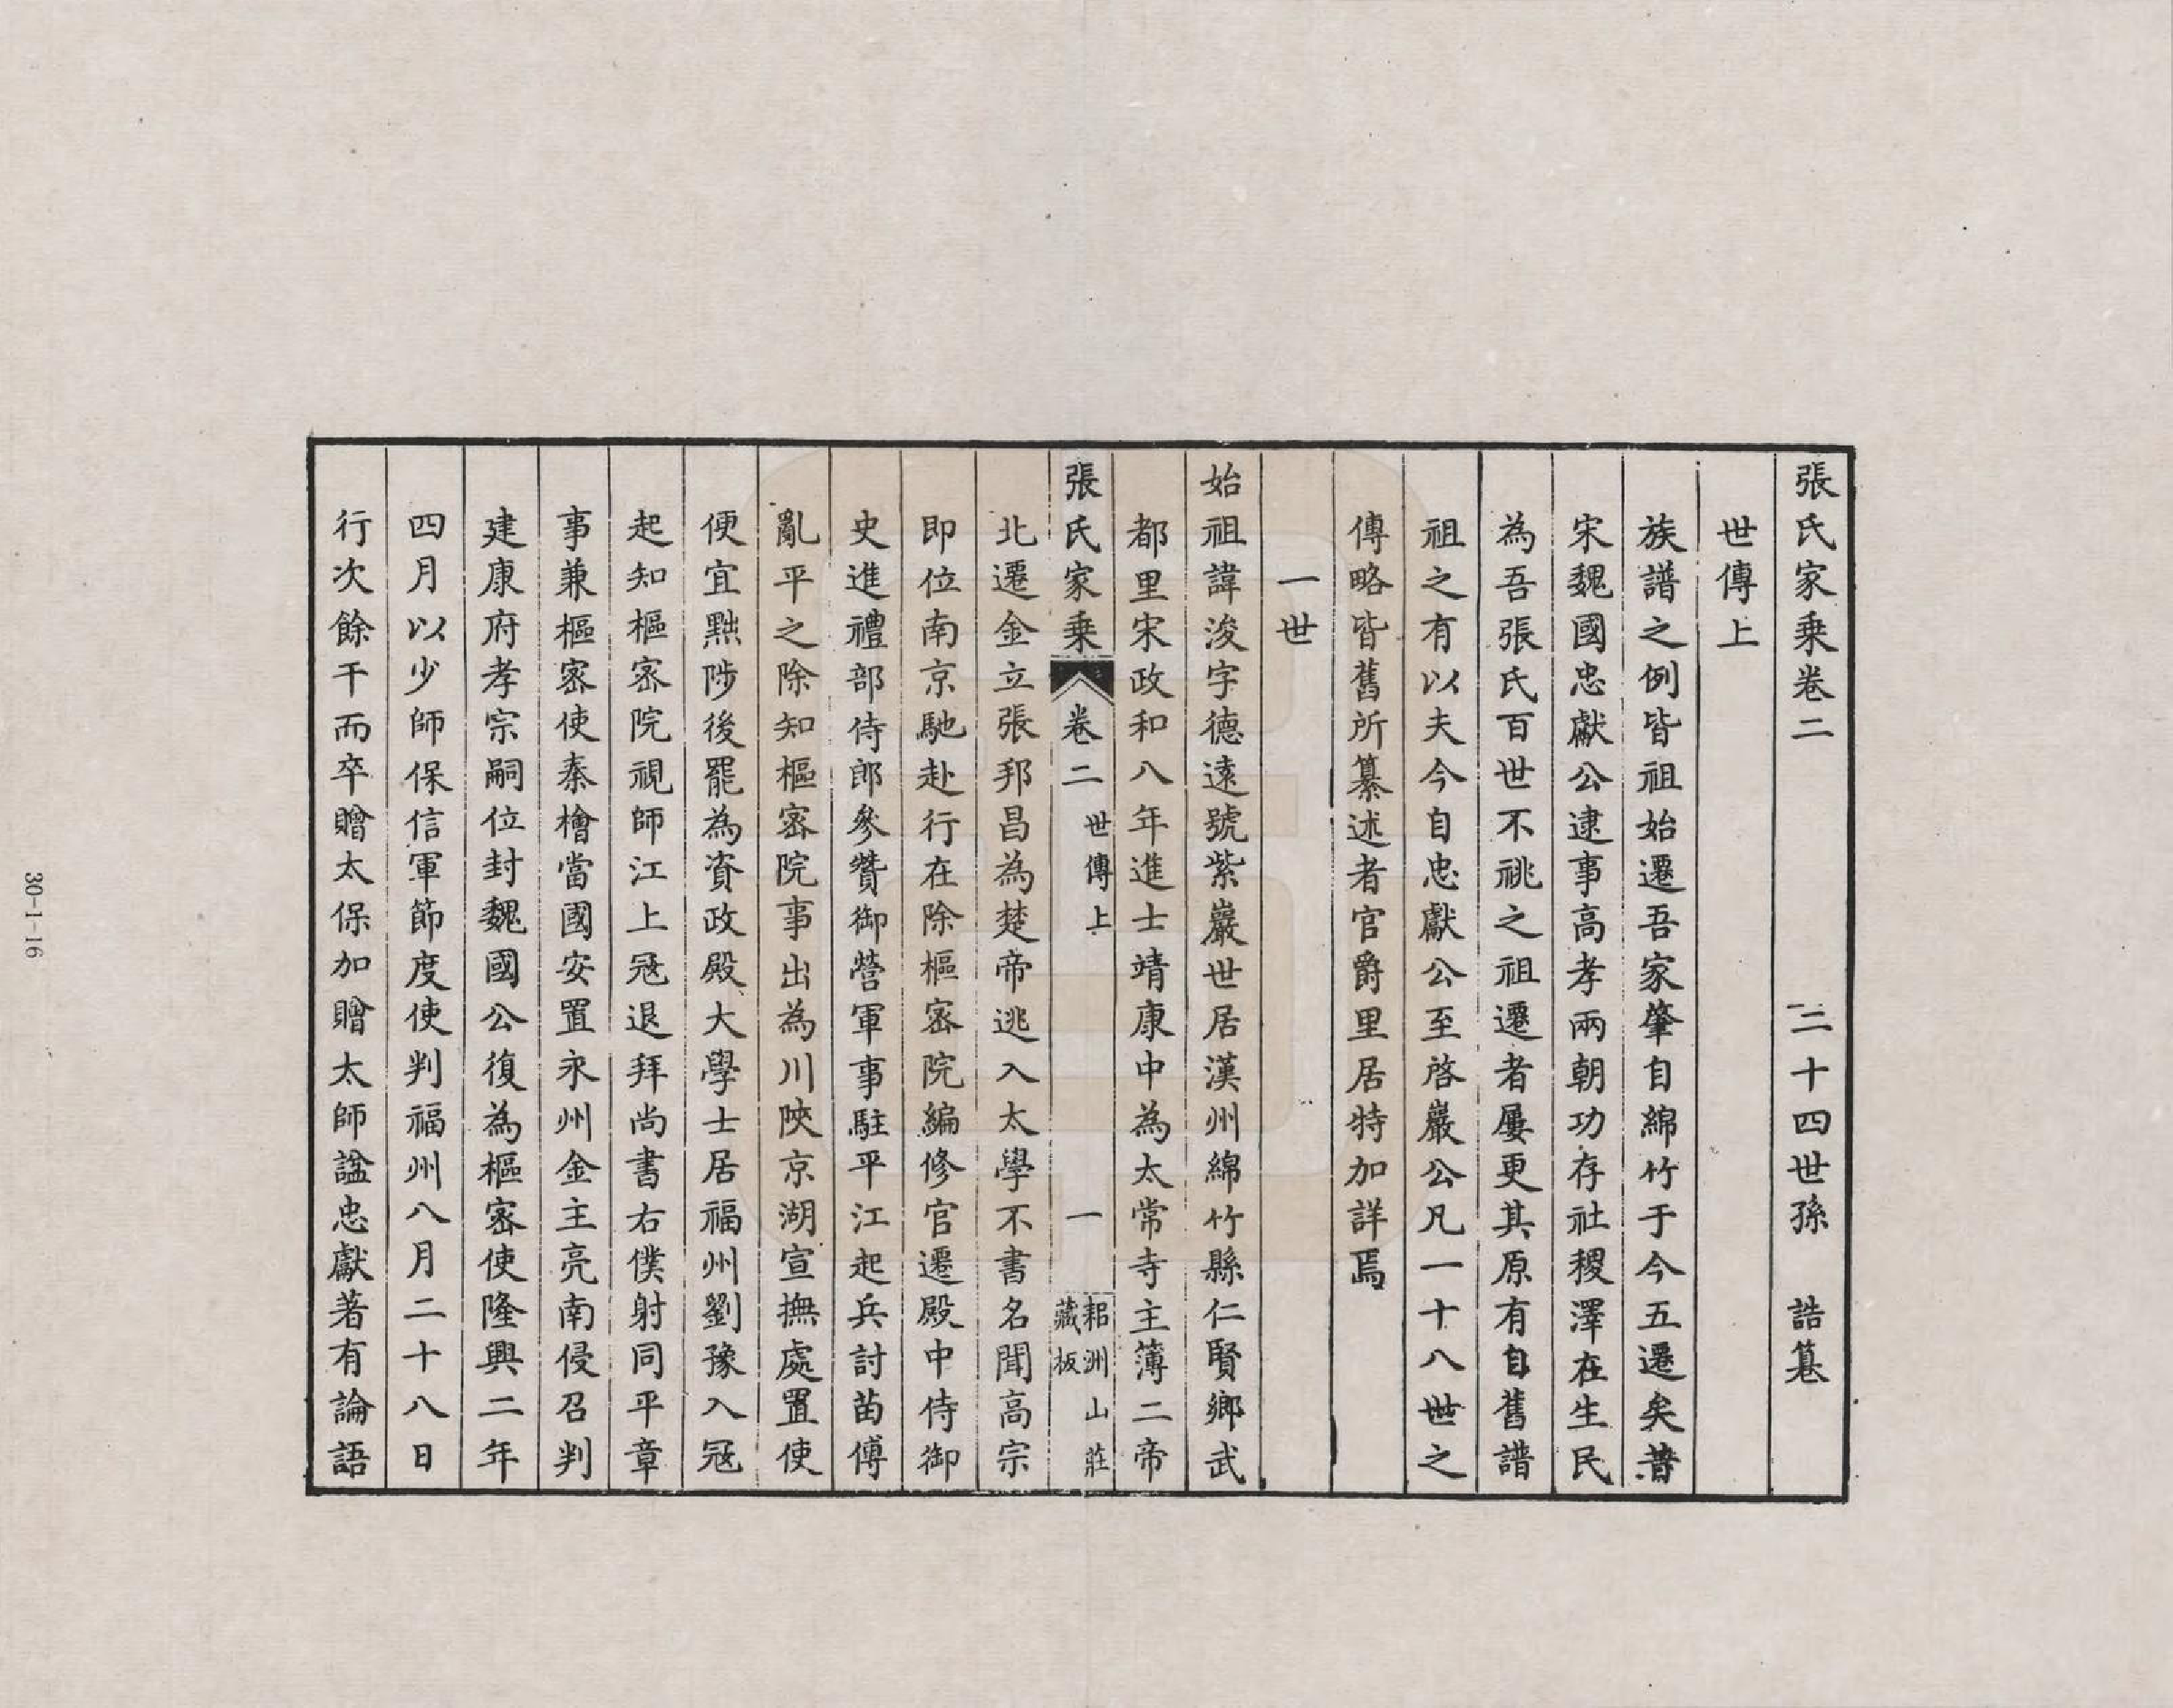 張氏家乗卷二 三十四世孫 誥篹
世傳上
族譜之例皆祖始遷吾家肇自綿竹于今五遷矣昔
宋魏國忠獻公逮事高孝兩朝功存社稷澤在生民
為吾張氏百世不祧之祖遷者屢更其原有自舊譜
祖之有以夫今自忠獻公至啓巖公凡一十八世之
傳略皆舊所纂述者官爵里居特加詳焉
一世
始祖諱浚字德遠號紫巖世居漢州綿竹縣仁賢鄉武
都里宋政和八年進士靖康中為太常寺主簿二帝
張氏家乗 卷二 世傳上 一 耜洲山莊藏板
北遷金立張邦昌為楚帝逃入太學不書名聞高宗
即位南京馳赴行在除樞密院編修官遷殿中侍御
史進禮部侍郎參贊御營軍事駐平江起兵討苗傅
亂平之除知樞密院事出為川陝京湖宣撫處置使
便宜黜陟後罷為資政殿大學士居福州劉豫入冦
起知樞密院視師江上冦退拜尚書右僕射同平章
事兼樞密使秦檜當國安置永州金主亮南侵召判
建康府孝宗嗣位封魏國公復為樞密使隆興二年
四月以少師保信軍節度使判福州八月二十八日
行次餘干而卒贈太保加贈太師謚忠獻著有論語
30-1-16